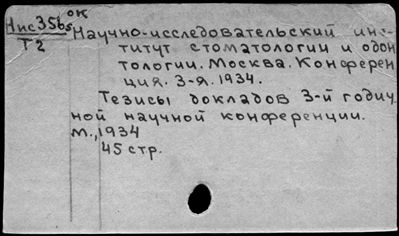 ок
Нис356s
Т2
Научно-исследовательский инс-
титут стоматологии и одон
тологии. Москва. Конферен
ция. 3-я. 1934.
Тезисы докладов 3-й годич
ной научной конференции.
М., 1934
45 стр.